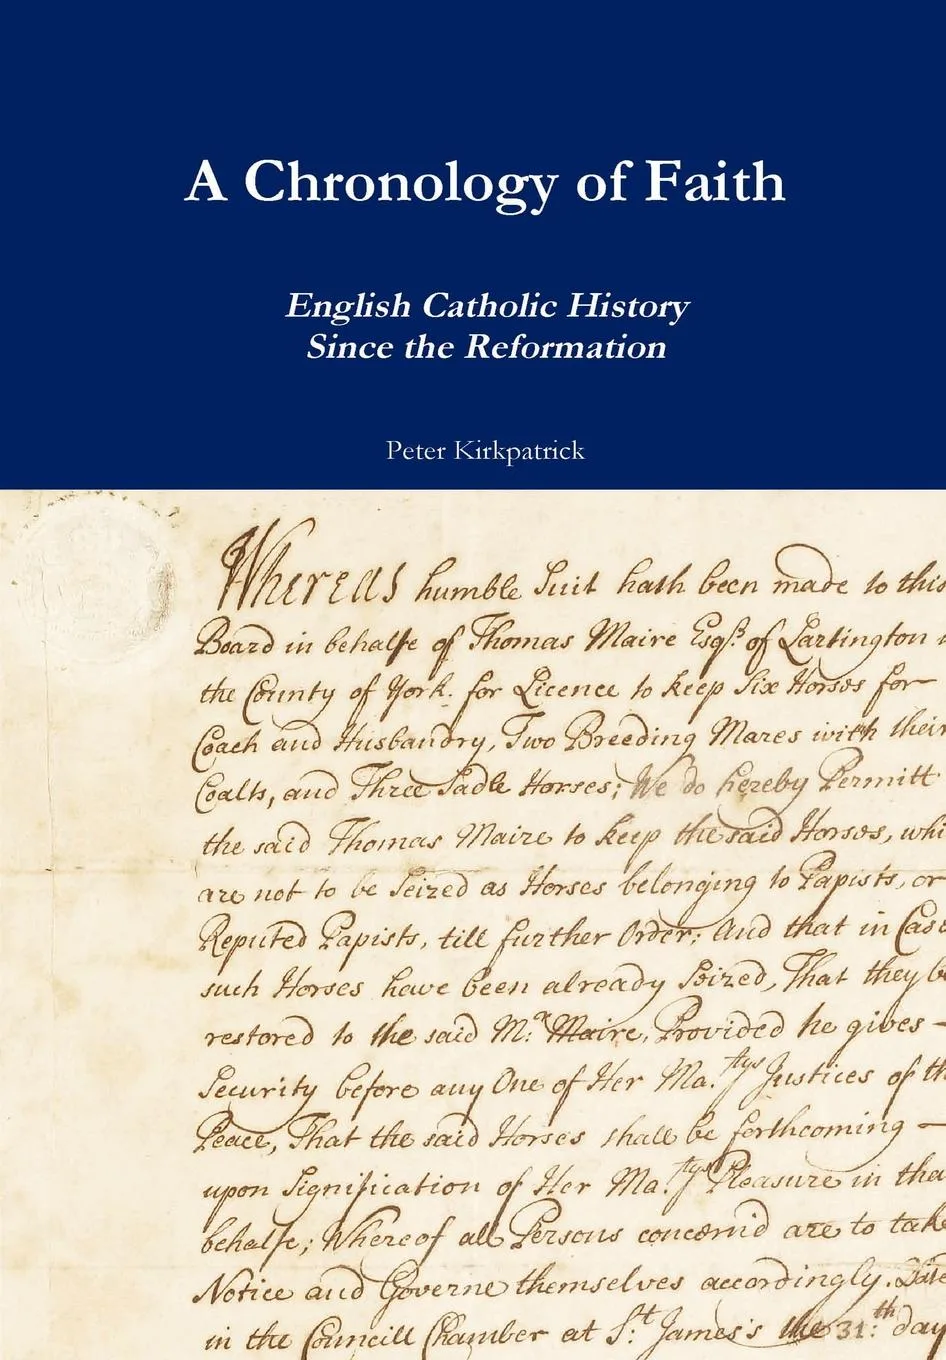 A Chronology of Faith
English Catholic History
Since the Reformation
Peter Kirkpatrick
Whereas humble Suit hath been made to this
Board in behalfe of Thomas Maire Esqr. of Lartington
the County of York. for Licence to keep Six Horses for
Coach and Husbandry, Two Breeding Mares with their
Coalts, and Three Sadle Horses; We do hereby Permitt
the said Thomas Maire to keep the said Horses, whi
are not to be Seized as Horses belonging to Papists, or
Reputed Papists, till further Order; And that in Case
such Horses have been already Seized, That they be
restored to the said Mr. Maire, Provided he gives –
Security before any One of Her Ma.tys Justices of th
Peace, That the said Horses shall be forthcoming –
upon Signification of Her Ma.tys Pleasure in tha
behalfe; Whereof all Persons concern'd are to take
Notice and Governe themselves accordingly. Date
in the Councill Chamber at St. James's the 31:th day